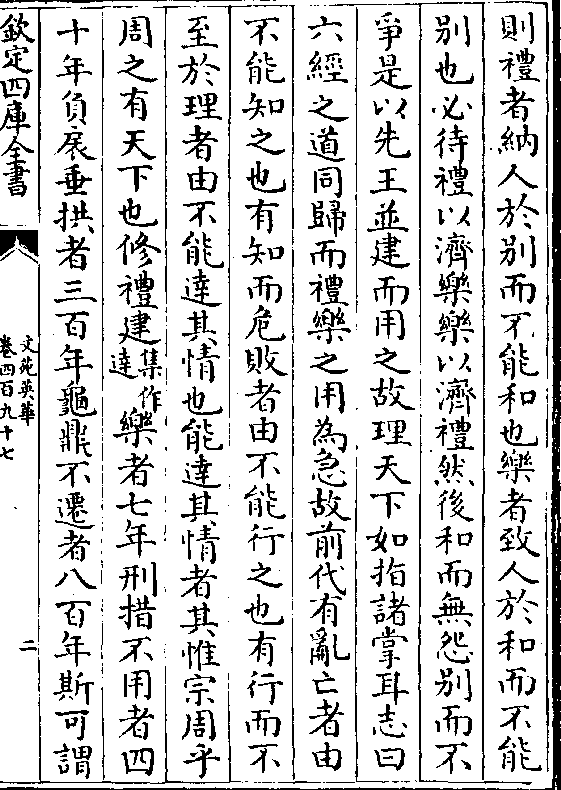 則禮者納人於別而不能和也樂者致人於和而不能
別也必待禮以濟樂樂以濟禮然後和而無怨別而不
爭是以先王並建而用之故理天下如指諸掌耳志曰
六經之道同歸而禮樂之用為急故前代有亂亡者由
不能知之也有知而危敗者由不能行之也有行而不
至於理者由不能達其情也能達其情者其惟宗周乎
周之有天下也修禮建集作達樂者七年刑措不用者四
十年負扆垂拱者三百年龜鼎不遷者八百年斯可謂
欽定四庫全書
文苑英華
卷四百九十七
二